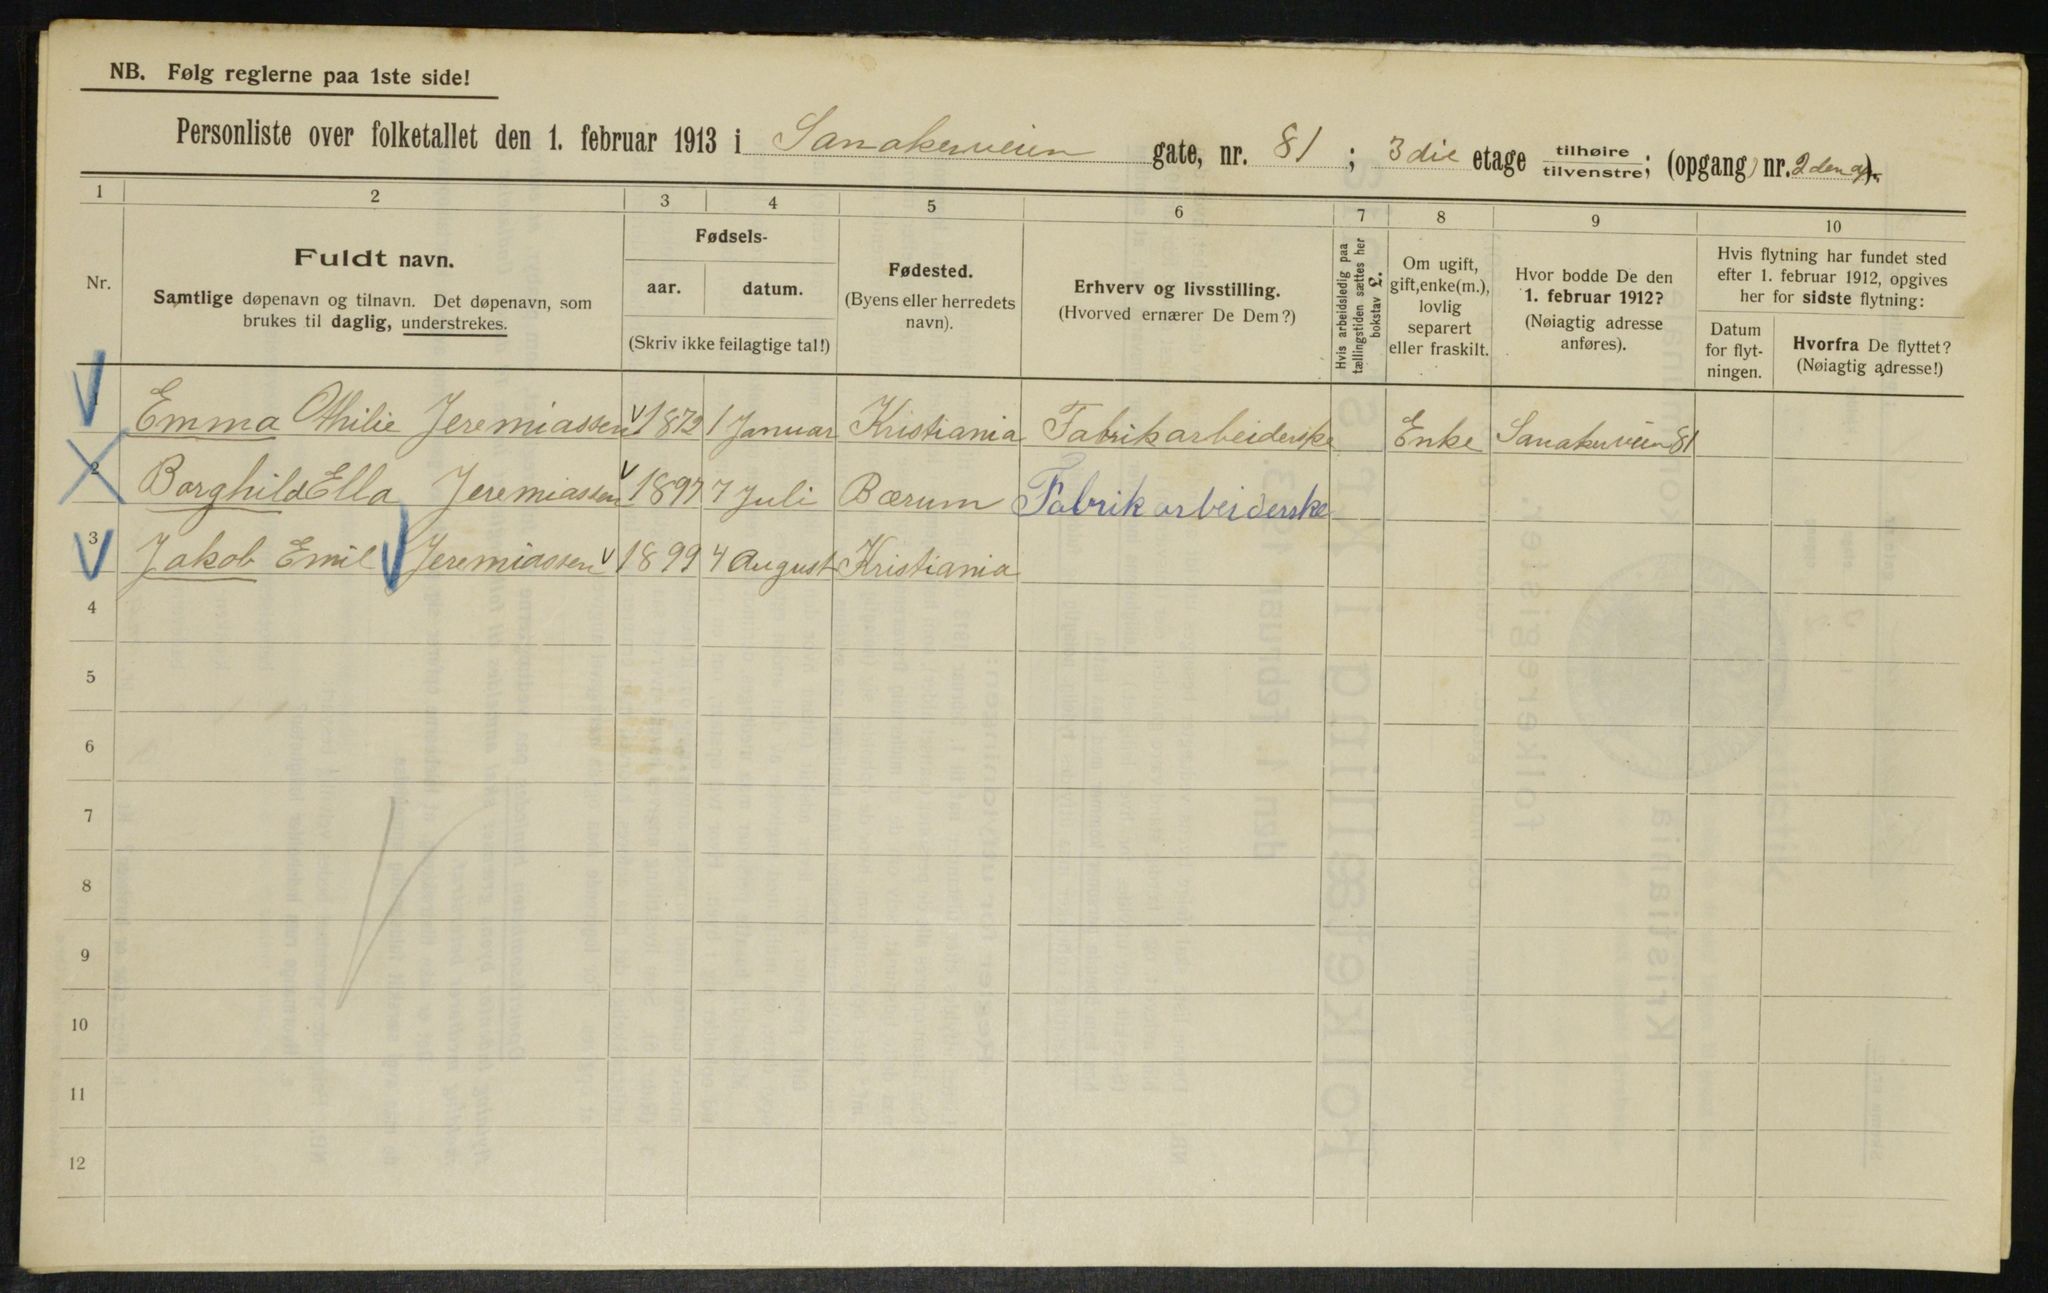 NB. Følg reglerne paa 1ste side!
Personliste over folketallet den 1. februar 1913 i Sanakerveien gate, nr. 81 ; 3die etage tilhøire/tilvenstre; (opgang) nr. 2den
1 2 3 4 5 6 7 8 9 10
Nr.
Fuldt navn.
Samtlige døpenavn og tilnavn. Det døpenavn, som
brukes til daglig, understrekes.
Fødsels-
aar. datum.
(Skriv ikke feilagtige tal!)
Fødested.
(Byens eller herredets
navn).
Erhverv og livsstilling.
(Hvorved ernærer De Dem?)
Hvis arbeidsledig paa
tællingstiden sættes her
bokstav L.
Om ugift,
gift, enke(m.),
lovlig
separert
eller fraskilt.
Hvor bodde De den
1. februar 1912?
(Nøiagtig adresse
anføres).
Hvis flytning har fundet sted
efter 1. februar 1912, opgives
her for sidste flytning:
Datum
for flyt-
ningen.
Hvorfra De flyttet?
(Nøiagtig adresse!)
1 Emma Othilie Jeremiassen 1872 1 Januar Kristiania Fabrikarbeiderske Enke Sanakerveien 81
2 Borghild Ella Jeremiassen 1897 7 Juli Bærum Fabrikarbeiderske
3 Jakob Emil Jeremiassen 1899 4 August Kristiania
4
5
6
7
8
9
10
11
12